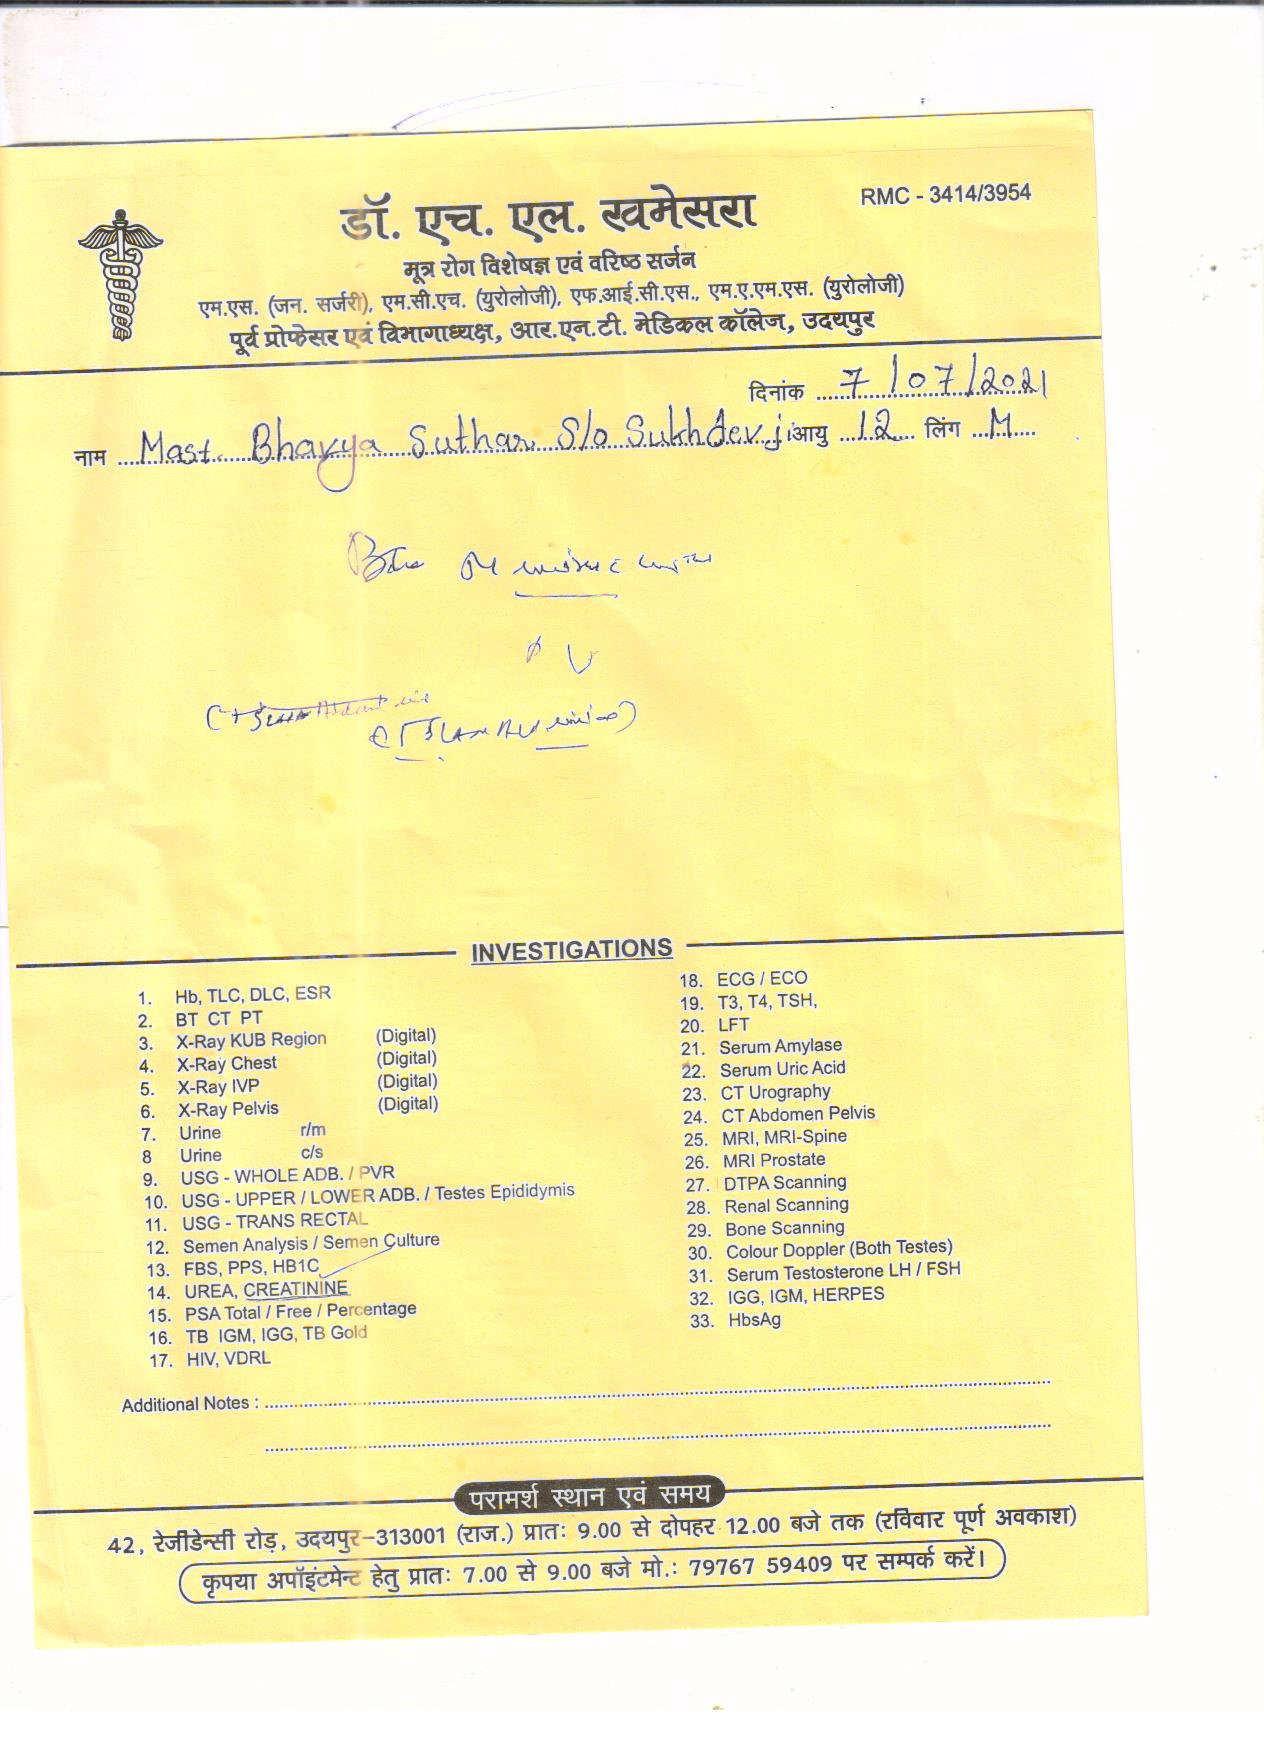 RMC - 3414/3954
डॉ. एच. एल. खमेसरा
मूत्र रोग विशेषज्ञ एवं वरिष्ठ सर्जन
एम.एस. (जन. सर्जरी), एम.सी.एच. (युरोलोजी), एफ.आई.सी.एस., एम.ए.एम.एस. (युरोलोजी)
पूर्व प्रोफेसर एवं विभागाध्यक्ष, आर.एन.टी. मेडिकल कॉलेज, उदयपुर
दिनांक 7/07/2021
नाम Mast. Bhavya Suthar S/o Sukhdevji आयु 12 लिंग M
INVESTIGATIONS
1. Hb, TLC, DLC, ESR
2. BT CT PT
3. X-Ray KUB Region (Digital)
4. X-Ray Chest (Digital)
5. X-Ray IVP (Digital)
6. X-Ray Pelvis (Digital)
7. Urine r/m
8 Urine c/s
9. USG - WHOLE ADB. / PVR
10. USG - UPPER / LOWER ADB. / Testes Epididymis
11. USG - TRANS RECTAL
12. Semen Analysis / Semen Culture
13. FBS, PPS, HB1C
14. UREA, CREATININE
15. PSA Total / Free / Percentage
16. TB IGM, IGG, TB Gold
17. HIV, VDRL
18. ECG / ECO
19. T3, T4, TSH,
20. LFT
21. Serum Amylase
22. Serum Uric Acid
23. CT Urography
24. CT Abdomen Pelvis
25. MRI, MRI-Spine
26. MRI Prostate
27. DTPA Scanning
28. Renal Scanning
29. Bone Scanning
30. Colour Doppler (Both Testes)
31. Serum Testosterone LH / FSH
32. IGG, IGM, HERPES
33. HbsAg
Additional Notes :
परामर्श स्थान एवं समय
42, रेजीडेन्सी रोड़, उदयपुर-313001 (राज.) प्रातः 9.00 से दोपहर 12.00 बजे तक (रविवार पूर्ण अवकाश)
कृपया अपॉइंटमेन्ट हेतु प्रातः 7.00 से 9.00 बजे मो.: 79767 59409 पर सम्पर्क करें।